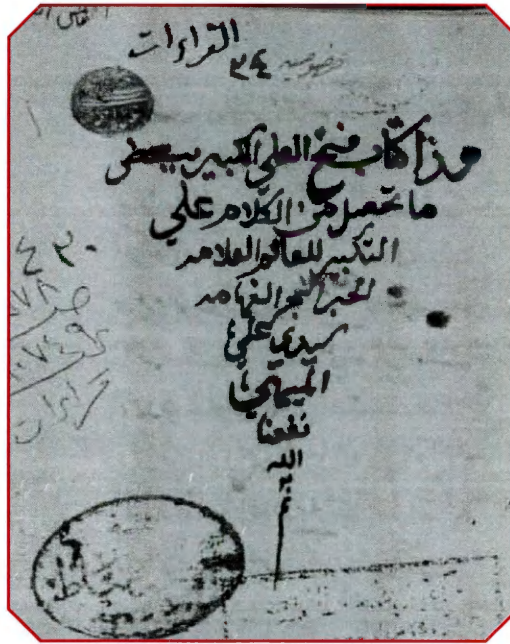 القراءات
خصوصية ٣٤
هذا كتاب فتح العلي الكبير ببعض
ما تحصل من الكلام علي
التكبير للعالم العلامه
الحبر البحر الفهامه
سيدي علي
الميهي
نفعنا
الله
به
٤٣٠
قراءات